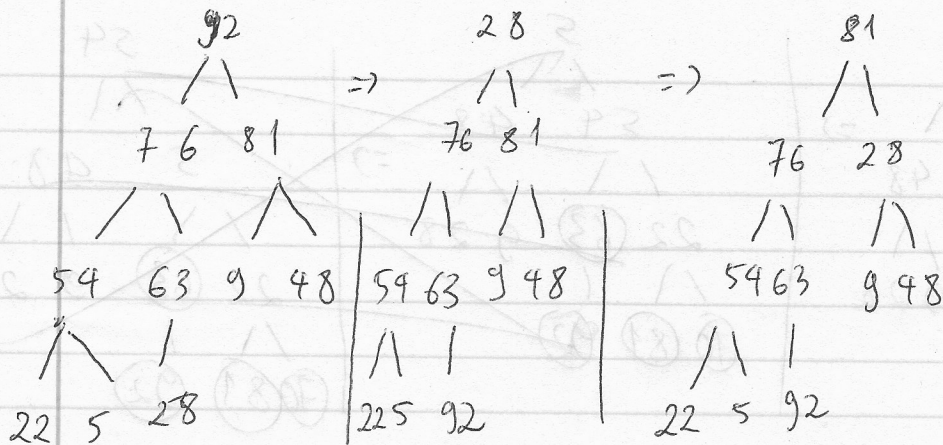 92 => 28 => 81
76 81 76 81 76 28
54 63 9 48 54 63 9 48 54 63 9 48
22 5 28 22 5 92 22 5 92